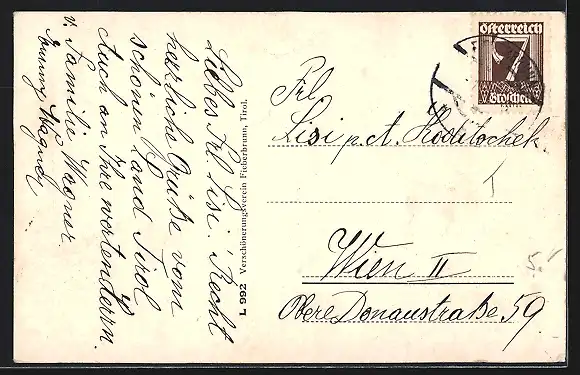 Liebes Frl. Lisi! Recht
herzliche Grüße vom
schönen Land Tirol
Auch an Ihre werten Herrn.
v. Familie Wagner
Wagner
L 962 Verschönerungsverein Fieberbrunn, Tirol.
Österreich
7
Groschen
Frl
Lisi p. A. Koditschek
Wien II
Obere Donaustraße 59.